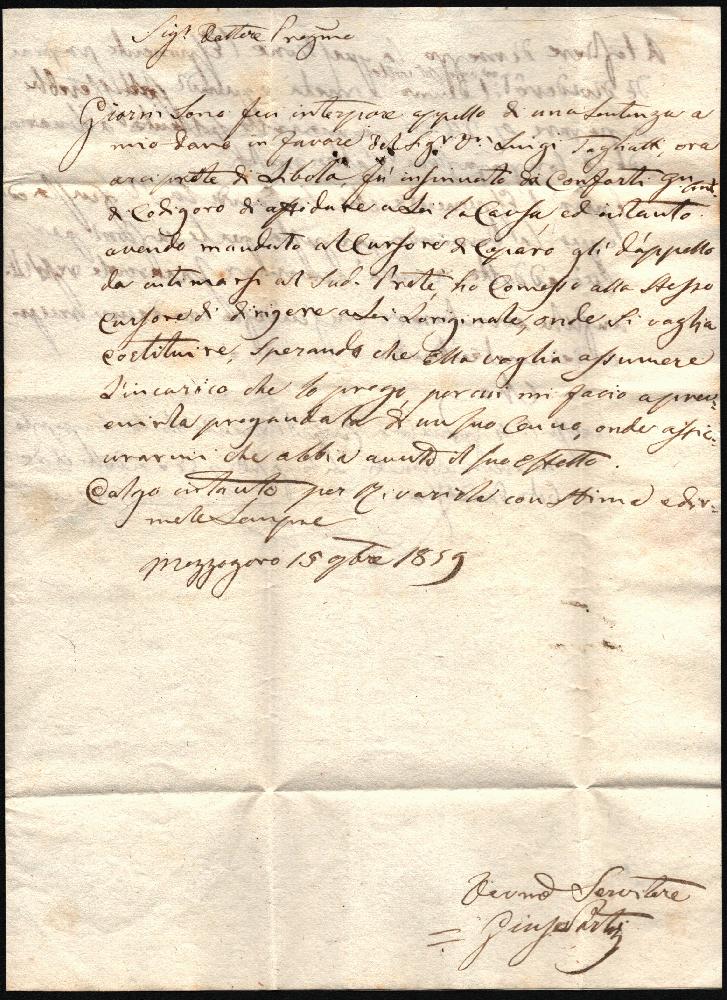 Sigr. Dottore Pregmo
Giorni sono feci interporre appello di una Sentenza a
mio danno in favore del Sigr Dn. Luigi ora
arciprete di Libolà, fu' insinuato da Conforti
di Codigoro di affidare a Lei la Causa ed intanto
avendo mandato al Cursore di Coparo gli d'appello
da intimarsi al Sud. Prete ho Comesso allo Stesso
Cursore di dirigere a Lei L'originale, onde Si voglia
costituire, Sperando che Ella voglia assumere
L'incarico che lo prego, per cui mi facio a prev=
enirla pregandola di un suo Cenno, onde assic=
urarmi che abbia avuto il suo effetto.
Colgo intanto per Riverirla con Stima e dir=
mele Sempre
Mezzogoro 15 9bre 1859
Devmo Servitore
= Giuse